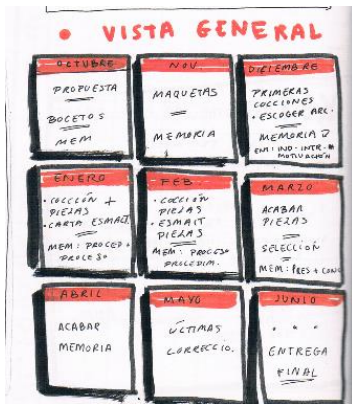 • VISTA GENERAL
OCTUBRE
PROPUESTA
BOCETOS
MEM
NOV.
MAQUETAS
MEMORIA
DICIEMBRE
PRIMERAS
COCCIONES
• ESCOGER ARC.
MEMORIA
EM: IND - INTR -
MOTIVACIÓN
ENERO
• COCCIÓN +
PIEZAS
• CARTA ESMALT.
MEM: PROCED +
PROCESO
FEB
• COCCIÓN
PIEZAS
• ESMALT
PIEZAS
MEM: PROCESO
PROCEDIM.
MARZO
ACABAR
PIEZAS
SELECCIÓN
MEM: PRES + CONC
ABRIL
ACABAR
MEMORIA
MAYO
ÚLTIMAS
CORRECCIO.
JUNIO
. . .
ENTREGA
FINAL